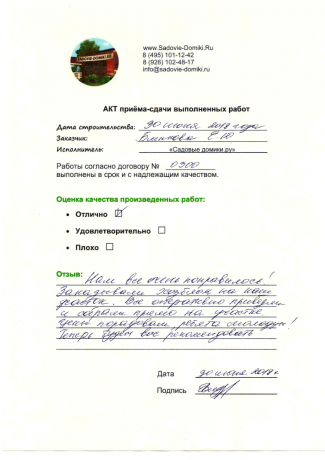 www.Sadovie-Domiki.Ru
8 (495) 101-12-42
8 (926) 102-48-17
info@sadovie-domiki.ru
АКТ приёма-сдачи выполненных работ
Дата строительства: 30 июня 2018 года
Заказчик: Е Ю
Исполнитель: «Садовые домики.ру»
Работы согласно договору № 0300
выполнены в срок и с надлежащим качеством.
Оценка качества произведенных работ:
Отлично
Удовлетворительно
Плохо
Отзыв: Нам все очень понравилось!
Заказывали Хозблок на наш
участок. Все оперативно привезли
и собрали прямо на участке
Цены порадовали, ребята молодцы!
Теперь будем вас рекомендовать
Дата 30 июня 2018 г
Подпись